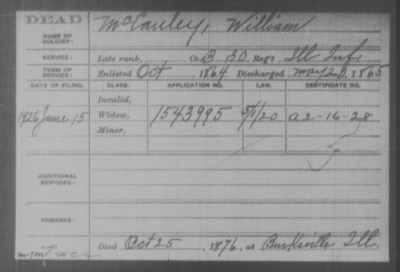 DEAD
NAME OF SOLDIER: McCauley, William
SERVICE: Late rank, Co. B 30 Reg't Ill Inf.
TERM OF SERVICE: Enlisted Oct, 1864 Discharged 1865
DATE OF FILING. CLASS. APPLICATION NO. LAW. CERTIFICATE NO.
Invalid,
1926 June 15 Widow, 1543995 5/1/20 a 2-16-28
Minor,
ADDITIONAL SERVICES:
REMARKS:
Died Oct 25, 1876, at Burksville Ill.